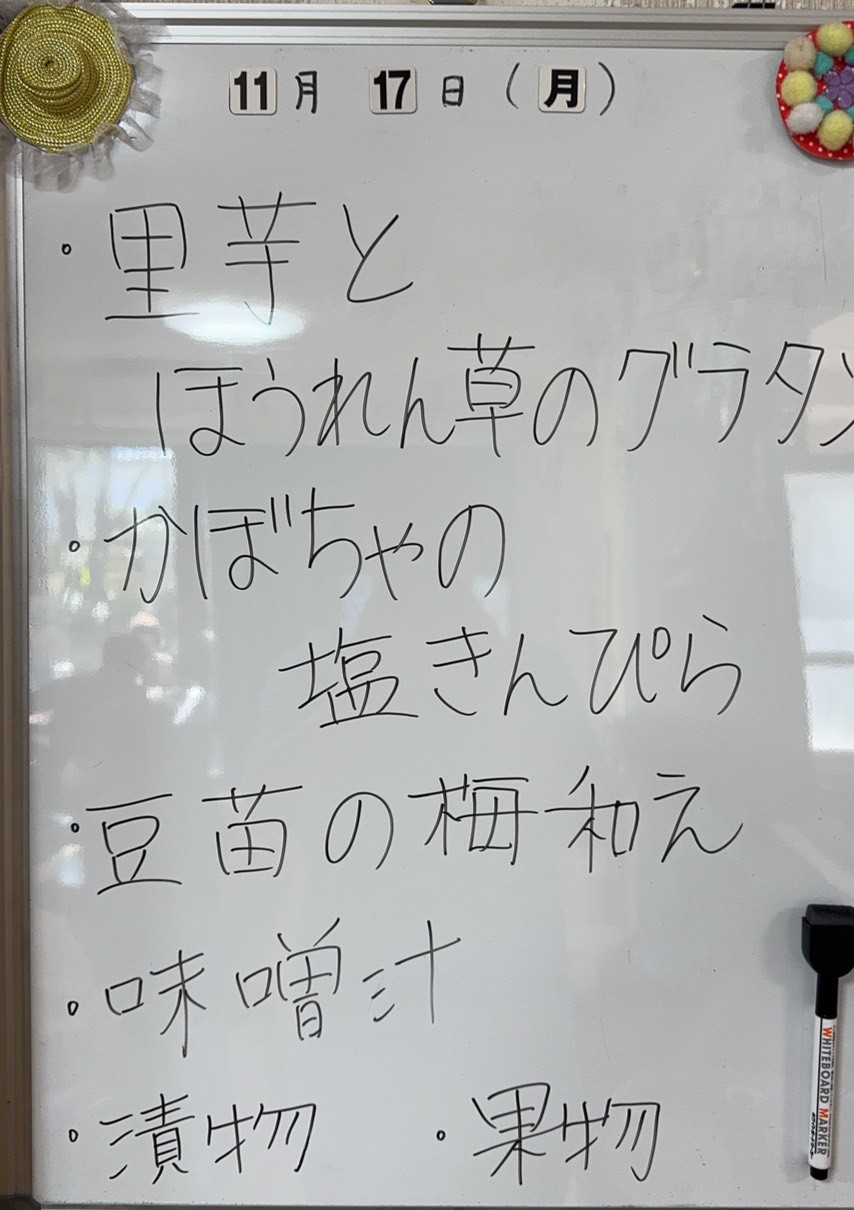 11月 17日(月)
・里芋と
ほうれん草のグラタン
・かぼちゃの
塩きんぴら
・豆苗の梅和え
・味噌汁
・漬物 ・果物
WHITEBOARD MARKER